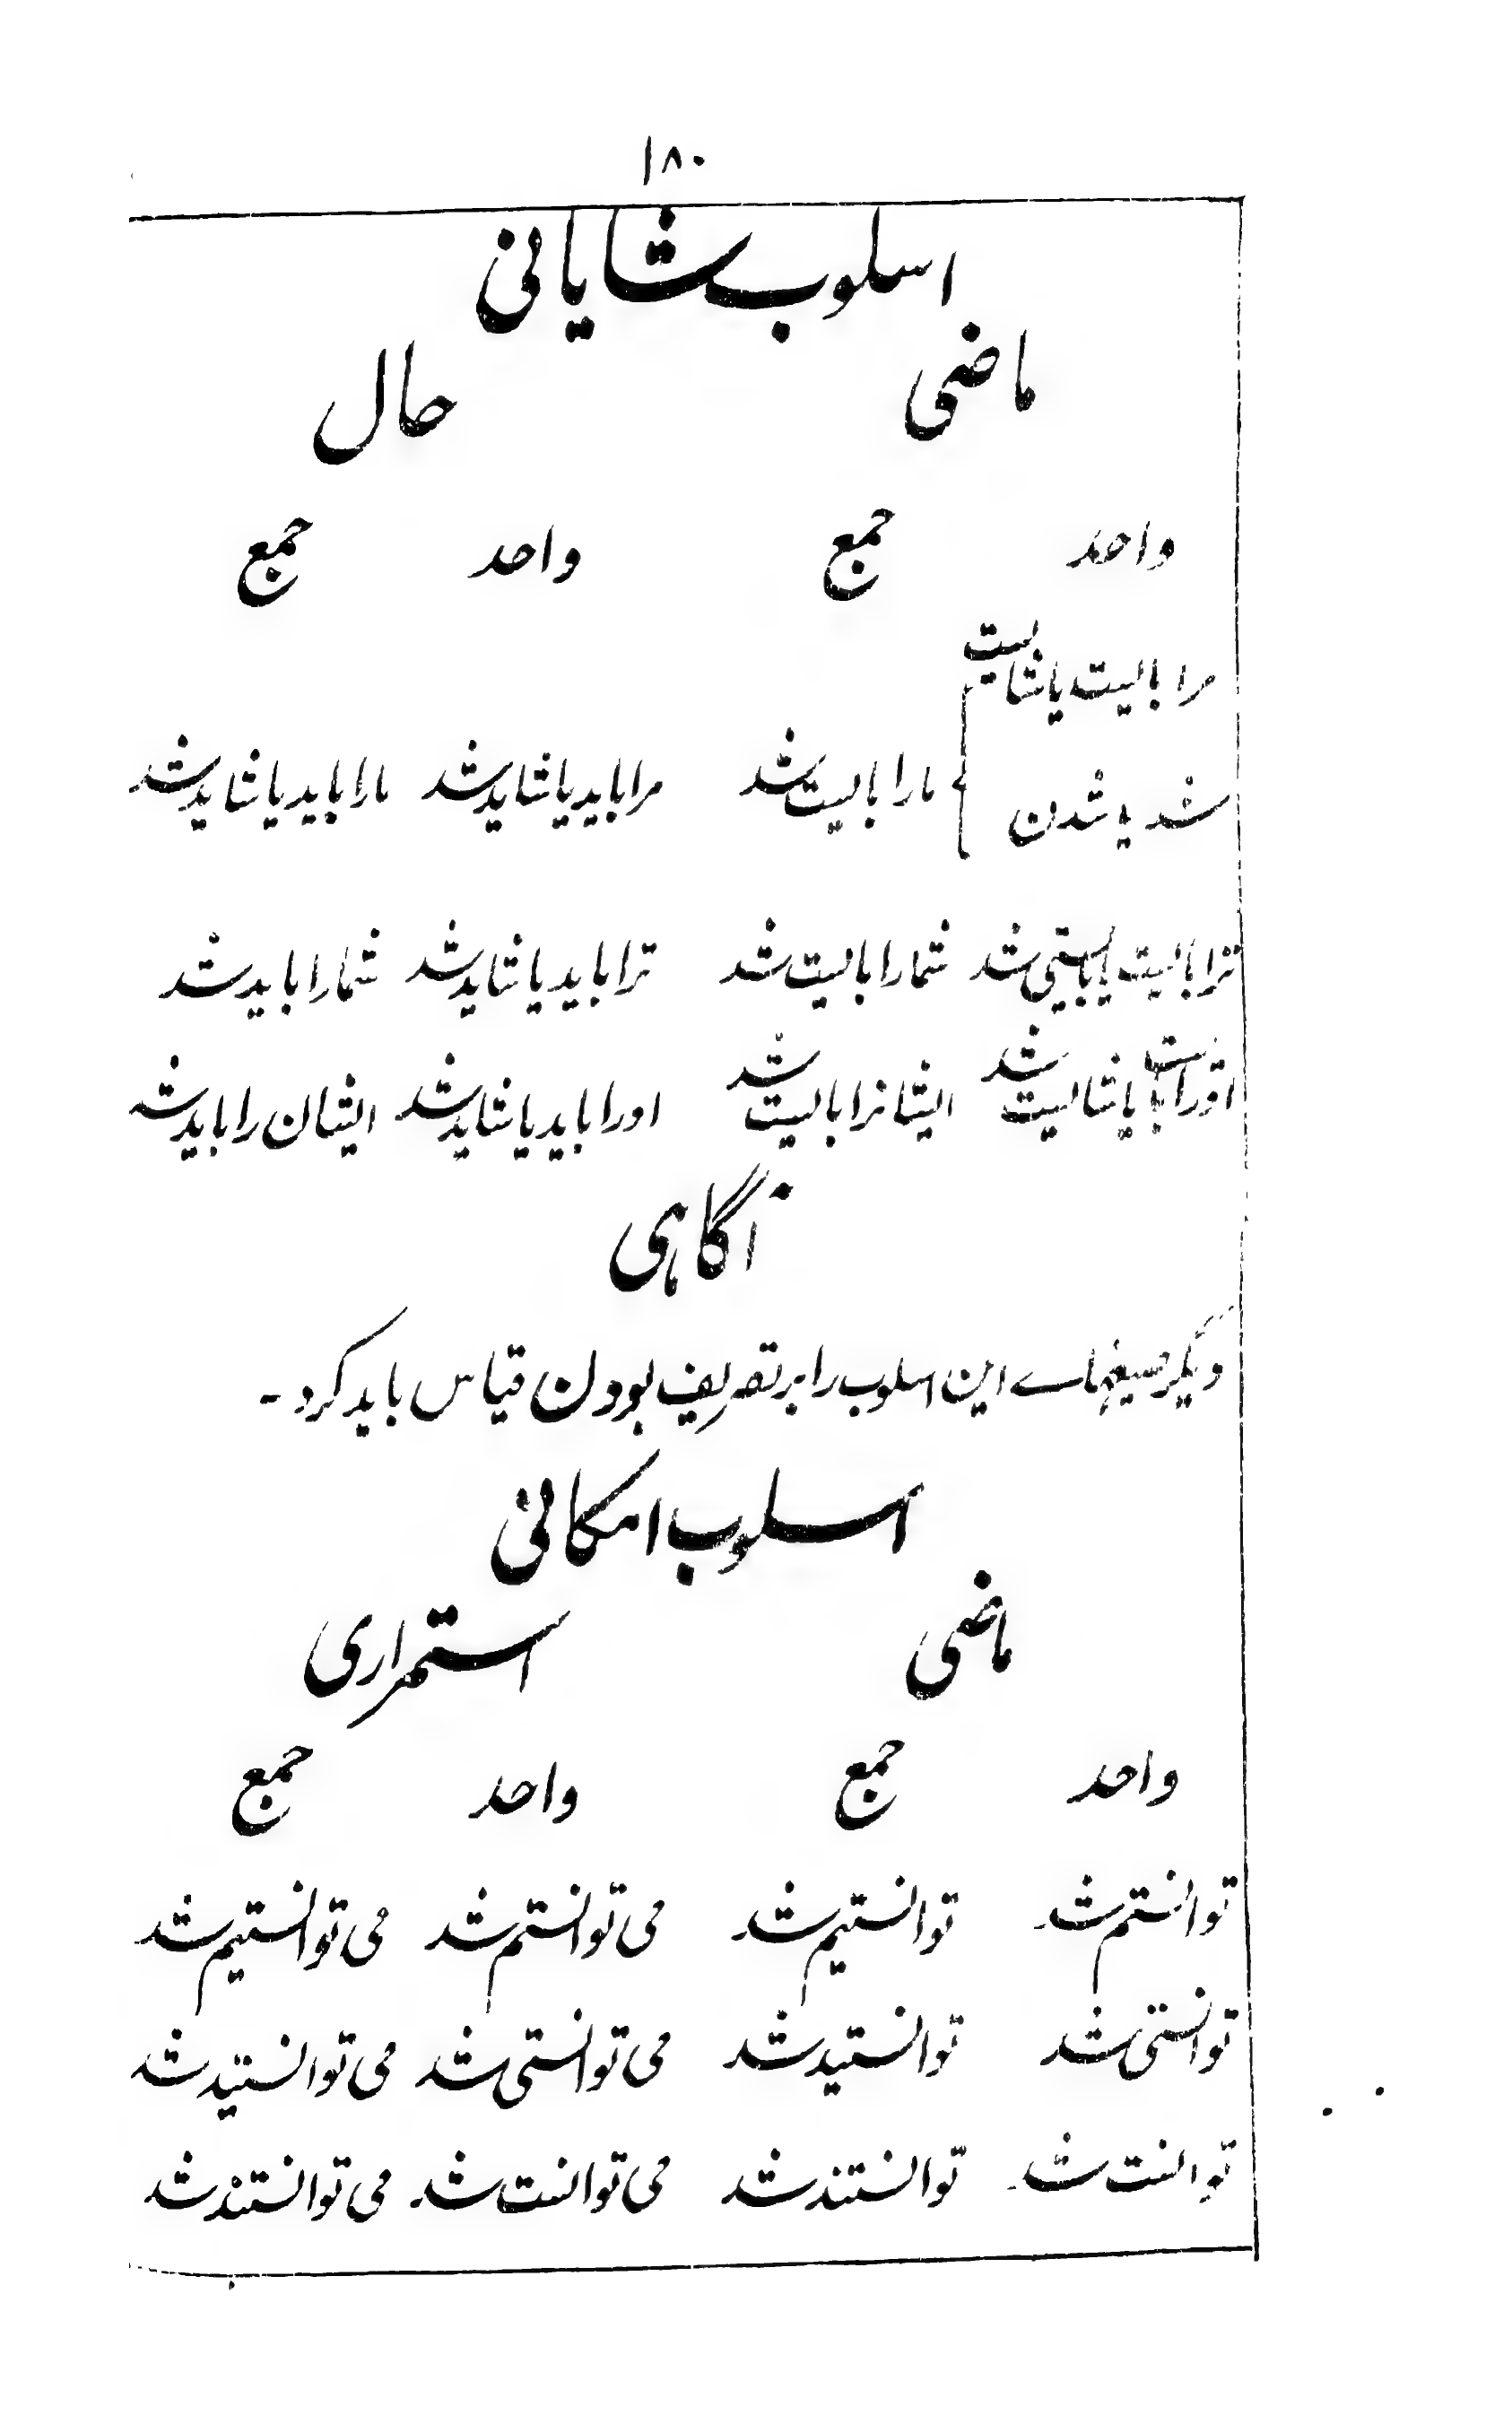 ۱۸۰
اسلوب شایانی
ماضی حال
واحد جمع واحد جمع
مرا بایست یا شایست
شد یا شدن } مارا بایست شد مرا باید یا شاید شد مارا باید یا شاید شد
ترا بایست یا بایستی شد شمارا بایست شد ترا باید یا شاید شد شمارا باید شد
اورا بایست یا شایست شد ایشانرا بایست شد اورا باید یا شاید شد ایشان را باید شد
آگاہی
دیگر صیغہاے این اسلوب را بر تصریف بودن قیاس باید کرد۔
اسلوب امکانی
ماضی استمراری
واحد جمع واحد جمع
توانستم شد توانستیم شد می توانستم شد می توانستیم شد
توانستی شد توانستید شد می توانستی شد می توانستید شد
توانست شد توانستند شد می توانست شد می توانستند شد